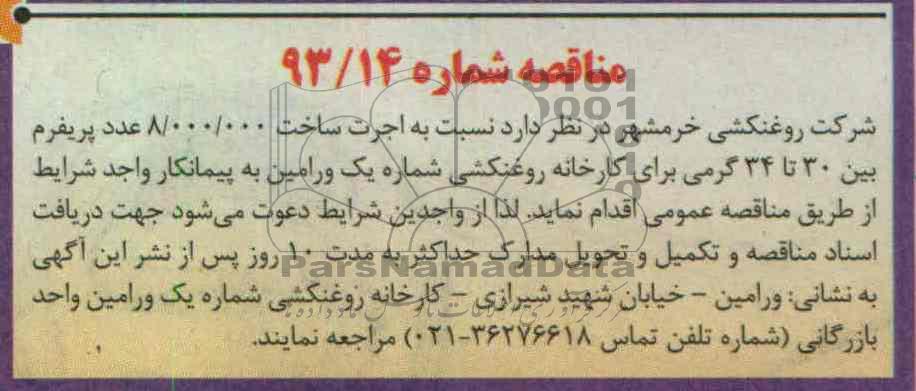 مناقصه شماره ۹۳/۱۴
شرکت روغنکشی خرمشهر در نظر دارد نسبت به اجرت ساخت ۸/۰۰۰/۰۰۰ عدد پریفرم
بین ۳۰ تا ۳۴ گرمی برای کارخانه روغنکشی شماره یک ورامین به پیمانکار واجد شرایط
از طریق مناقصه عمومی اقدام نماید. لذا از واجدین شرایط دعوت می‌شود جهت دریافت
اسناد مناقصه و تکمیل و تحویل مدارک حداکثر به مدت ۱۰ روز پس از نشر این آگهی
ParsNamadData
به نشانی: ورامین - خیابان شهید شیرازی - کارخانه روغنکشی شماره یک ورامین واحد
بازرگانی (شماره تلفن تماس ۳۶۲۷۶۶۱۸-۰۲۱) مراجعه نمایند.